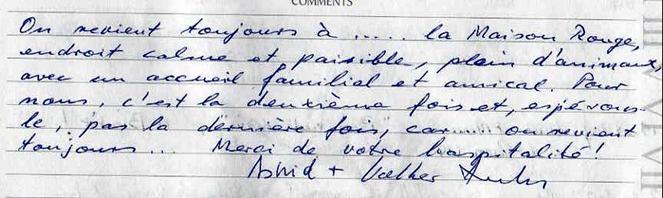 COMMENTS
On revient toujours à ..... la Maison Rouge,
endroit calme et paisible, plein d'animaux,
avec un accueil familial et amical. Pour
nous, c'est la deuxième fois et, espérons-
le, pas la dernière fois, car...... on revient
toujours... Merci de votre hospitalité!
Astrid +